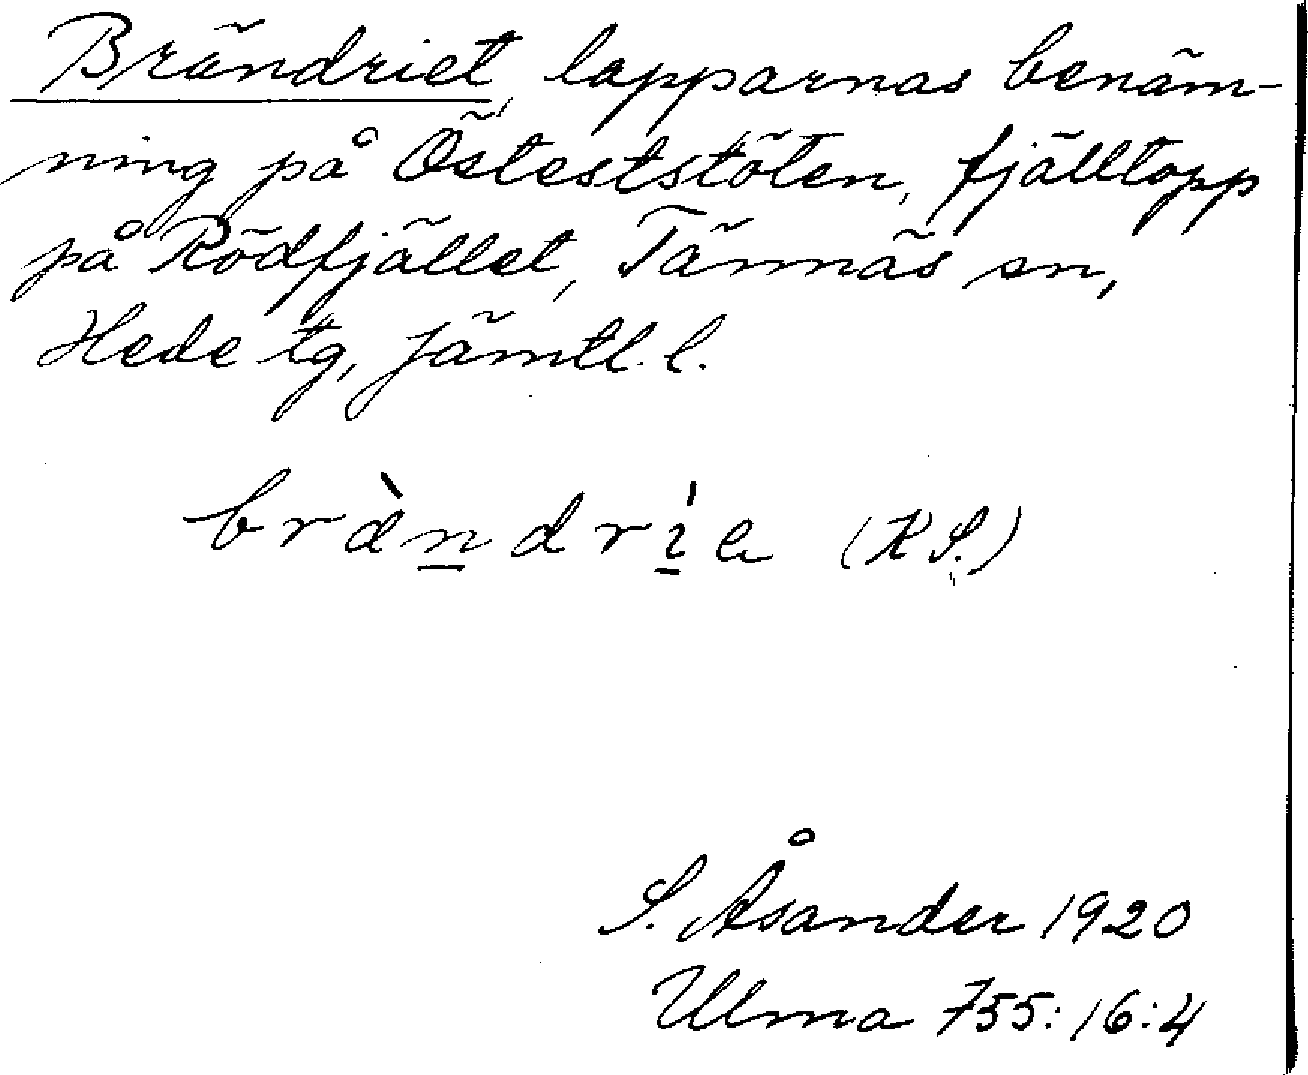 Brändriet, lapparnas benäm-
ning på Östeststöten, fjälltopp
på Rödfjället, Tännäs sn,
Hede tg, Jämtl. l.
bræ̀n̲dri̲̍e (K S.)
S. Åsander 1920
Ulma 755:16:4